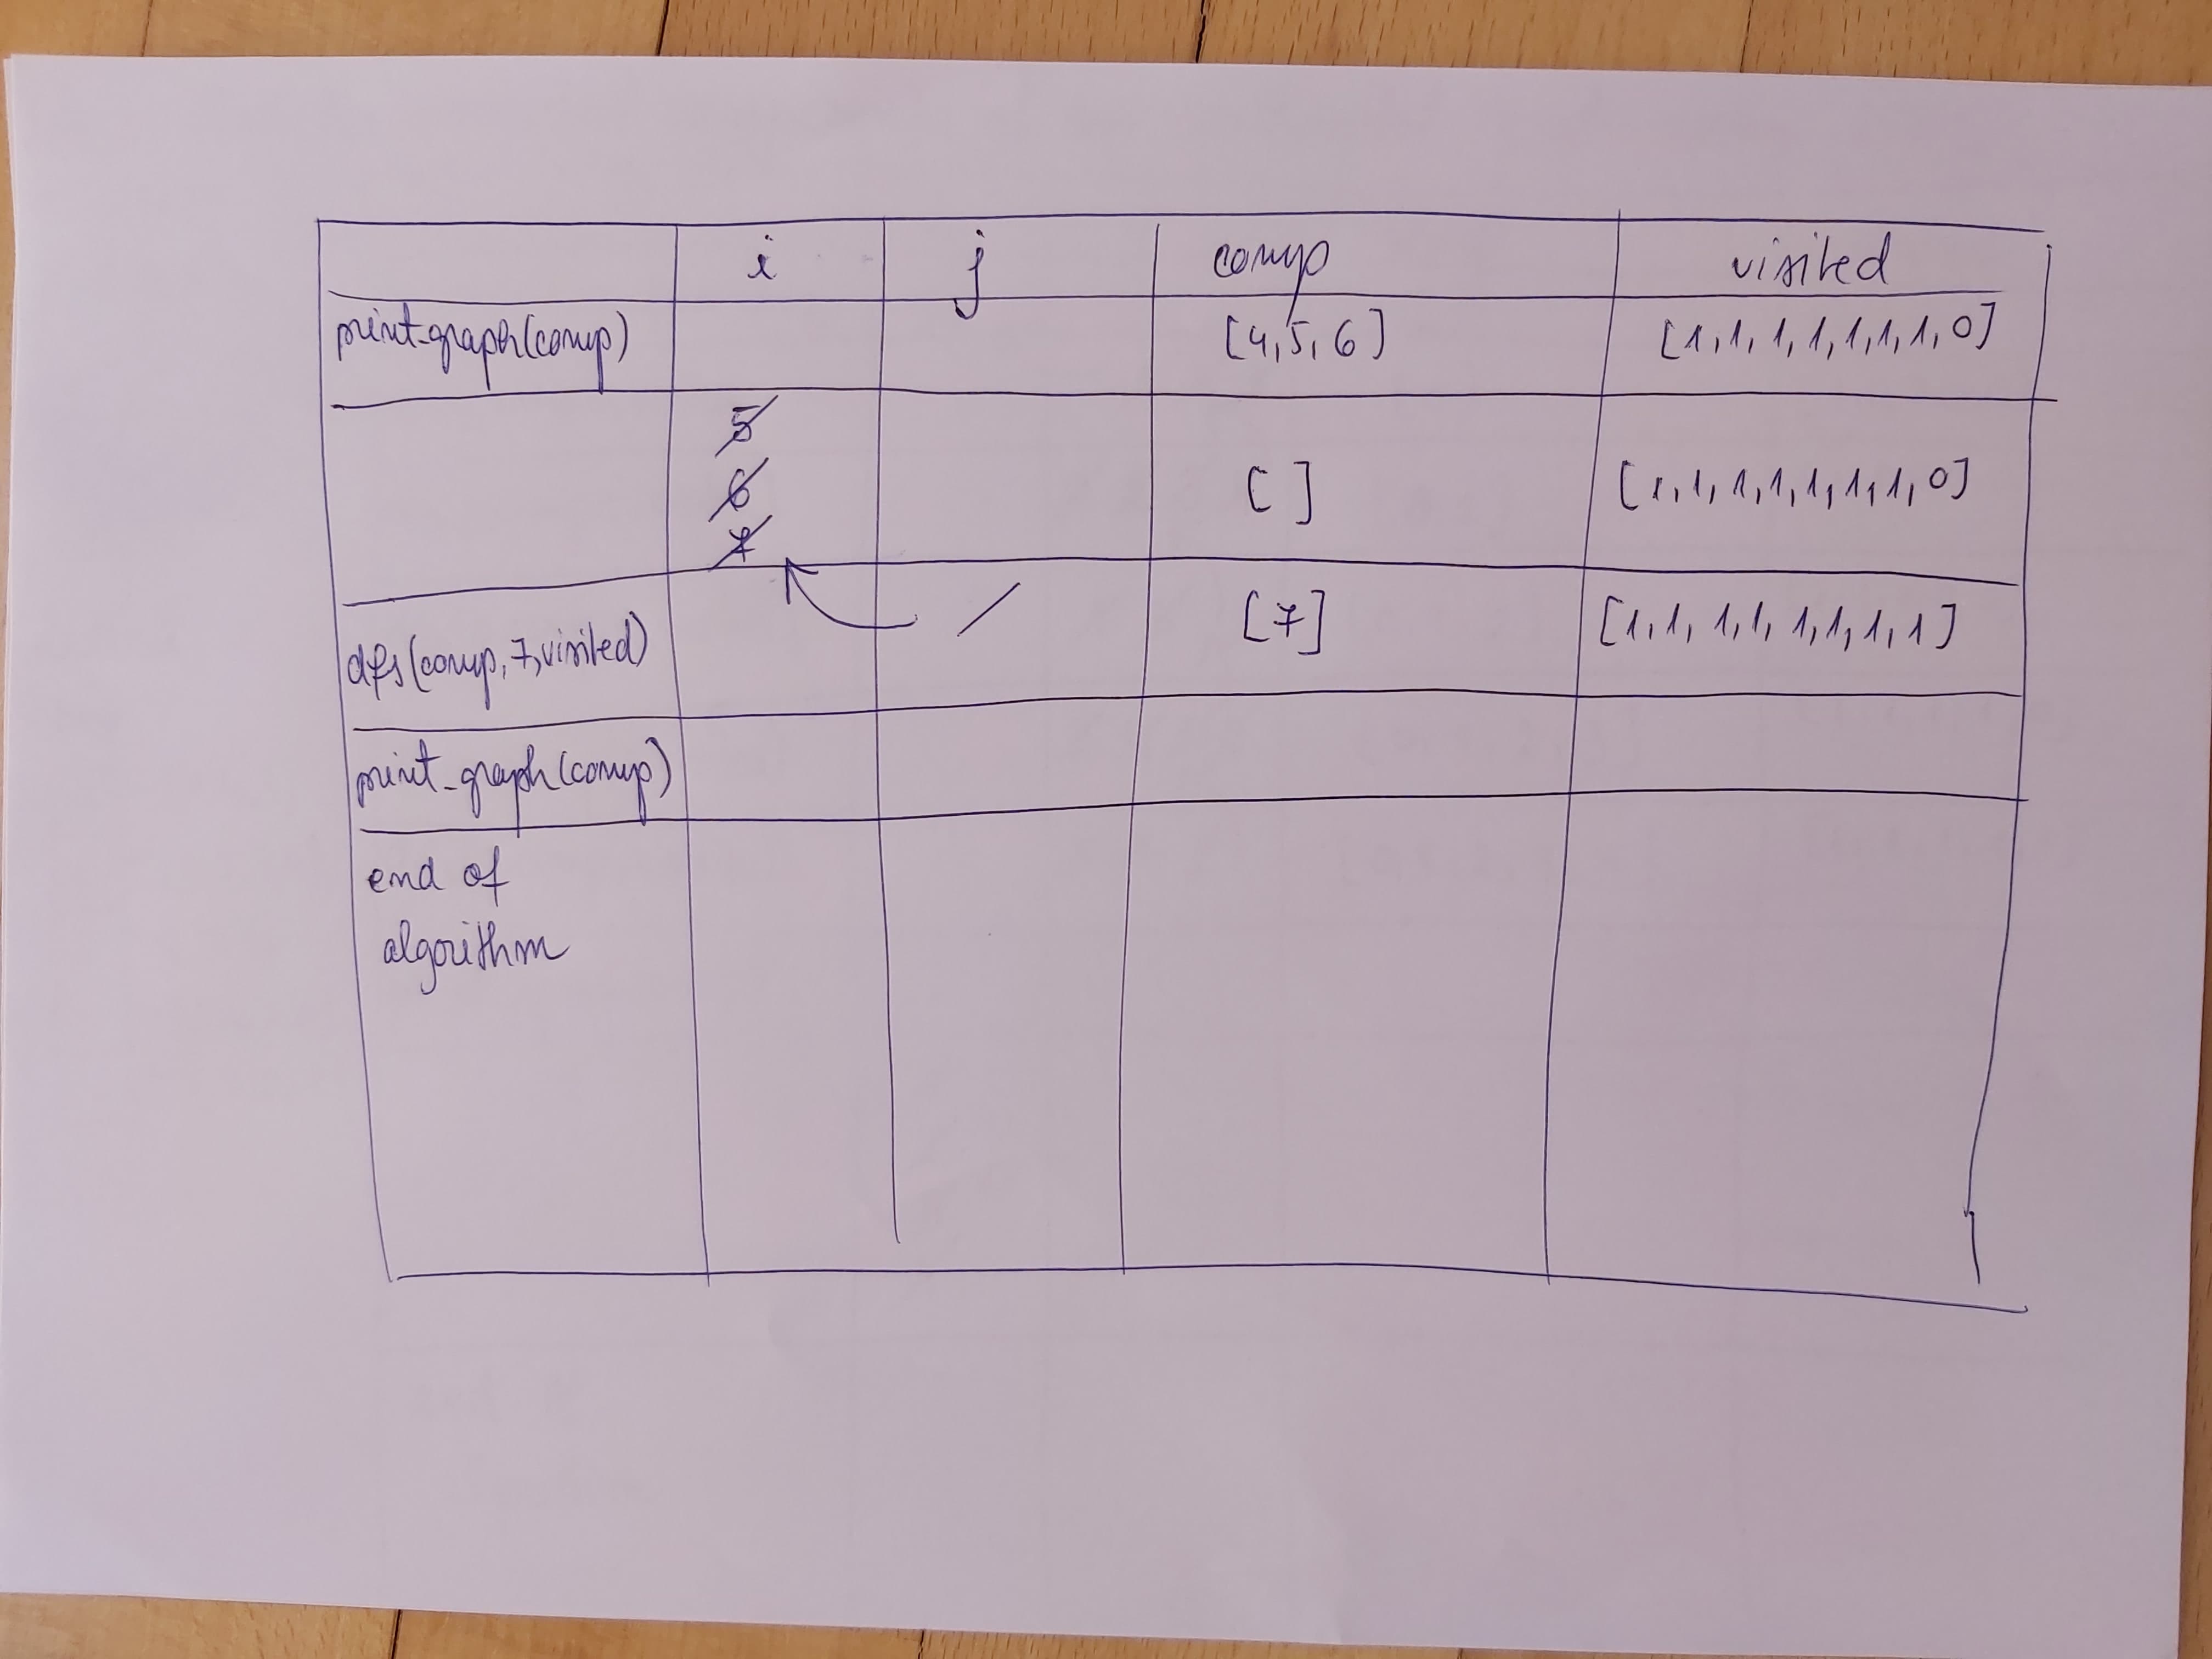 i j comp visited
print_graph(comp) [4,5,6] [1,1,1,1,1,1,1,0]
5
6 [ ] [1,1,1,1,1,1,1,0]
7
dfs(comp,7,visited) / [7] [1,1,1,1,1,1,1,1]
print_graph(comp)
end of
algorithm